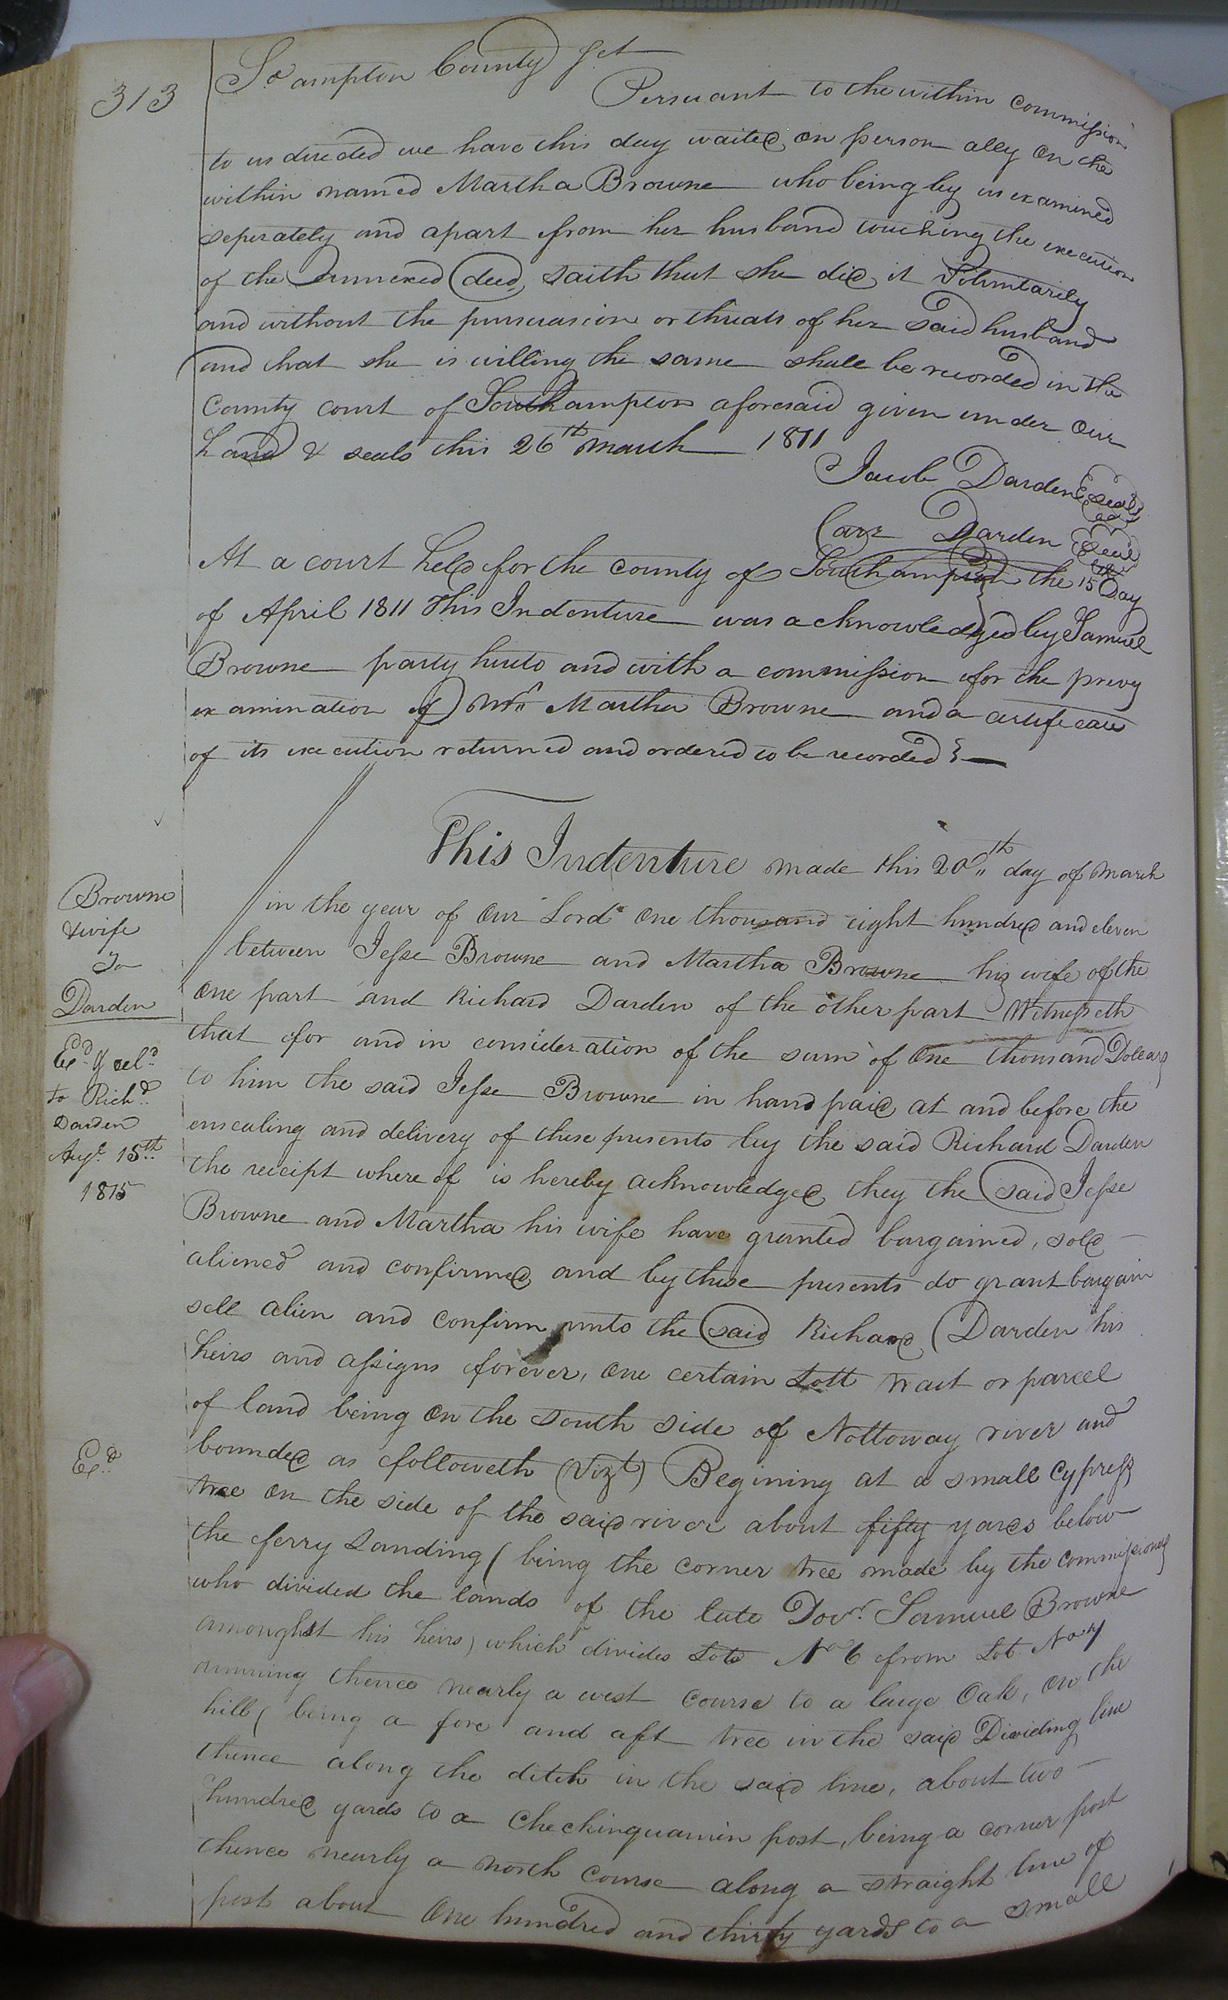 313
So ampton County Sct
Persuant to the within commission
to us directed we have this day waited on person ally on the
within named Martha Browne who being by us examined
seperately and apart from her husband touching the execution
of the annexed deed, saith that she did it Voluntarily
and without the pursuasion or threats of her said husband
and that she is willing the same shall be recorded in the
County court of Southampton aforesaid given under our
hand & seals this 26th march 1811
Jacob Darden seal
Carr Darden seal
At a court held for the county of Southampton the 15th Day
of April 1811 This Indenture was acknowledged by Samuel
Browne party hereto and with a commission for the prevy
examination of Mrs Martha Browne and a certificate
of its execution returned and ordered to be recorded
This Indenture made this 20th day of March
in the year of our Lord one thousand eight hundred and eleven
between Jesse Browne and Martha Browne his wife of the
one part and Richard Darden of the other part Witnesseth
that for and in consideration of the sum of One thousand Dollars
to him the said Jesse Browne in hand paid, at and before the
ensealing and delivery of these presents by the said Richard Darden
the receipt where of is hereby acknowledged, they the said Jesse
Browne and Martha his wife have granted bargained, sold
aliened and confirmed, and by these presents do grant bargain
sell alien and confirm unto the said Richard Darden his
heirs and assigns forever, one certain Lott tract or parcel
of land being on the south side of Nottoway river and
bounded as followeth (Vizt) Begining at a small Cypress
tree on the side of the said river about fifty yards below
the ferry Landing (being the corner tree made by the commissioners
who divided the lands of the late Docr. Samuel Browne
amonghst his heirs) which divides Lots No 6 from Lot No 7
running thence nearly a west course to a large Oak, on the
hill (being a fore and aft tree in the said Dividing line
thence along the ditch in the said line, about two
hundred yards to a Checkinquamin post, being a corner post
thence nearly a north course along a straight line of
post about One hundred and thirty yards to a small
Browne
& wife
To
Darden
Exd & deld
to Richd
Darden
Augt 15th
1815
Exd